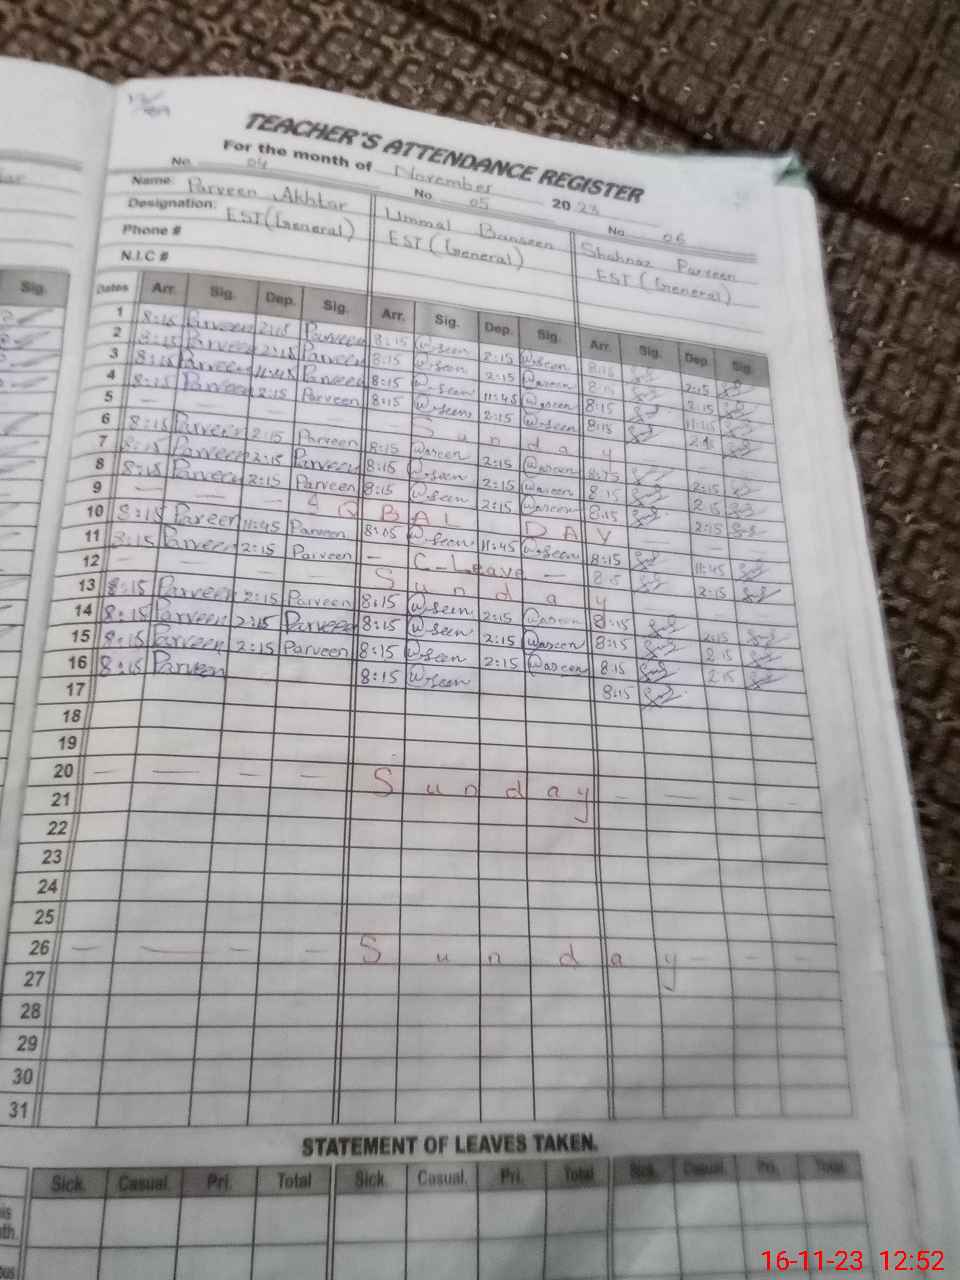 TEACHER'S ATTENDANCE REGISTER
For the month of November 2023
No. 04 No. 05 No. 06
Name: Parveen Akhtar Ummal Banseen Shahnaz Parveen
Designation: EST (General) EST (General) EST (General)
Phone #
N.I.C #
Sig.
Dates Arr. Sig. Dep. Sig. Arr. Sig. Dep. Sig. Arr. Sig. Dep. Sig.
1 8:15 Parveen 2:15 Parveen 8:15 2:15 8:15 2:15
2 8:15 Parveen 2:15 Parveen 8:15 2:15 8:15 2:15
3 8:15 Parveen 11:45 Parveen 8:15 11:45 8:15 11:45
4 8:15 Parveen 2:15 Parveen 8:15 2:15 8:15 2:15
5 — — — — Sunday — —
6 8:15 Parveen 2:15 Parveen 8:15 2:15 8:15 2:15
7 8:15 Parveen 2:15 Parveen 8:15 2:15 8:15 2:15
8 8:15 Parveen 2:15 Parveen 8:15 2:15 8:15 2:15
9 — — IQBAL DAY — —
10 8:15 Parveen 11:45 Parveen 8:05 11:45 8:15 11:45
11 8:15 Parveen 2:15 Parveen — C-Leave — 8:15 2:15
12 — — — — Sunday — —
13 8:15 Parveen 2:15 Parveen 8:15 2:15 8:15 2:15
14 8:15 Parveen 2:15 Parveen 8:15 2:15 8:15 2:15
15 8:15 Parveen 2:15 Parveen 8:15 2:15 8:15 2:15
16 8:15 Parveen 8:15 8:15
17
18
19
20 — — — — Sunday — — — —
21
22
23
24
25
26 — — — — Sunday — — —
27
28
29
30
31
STATEMENT OF LEAVES TAKEN.
Sick. Casual. Pri. Total Sick. Casual. Pri. Total Sick. Casual. Pri. Total
16-11-23 12:52